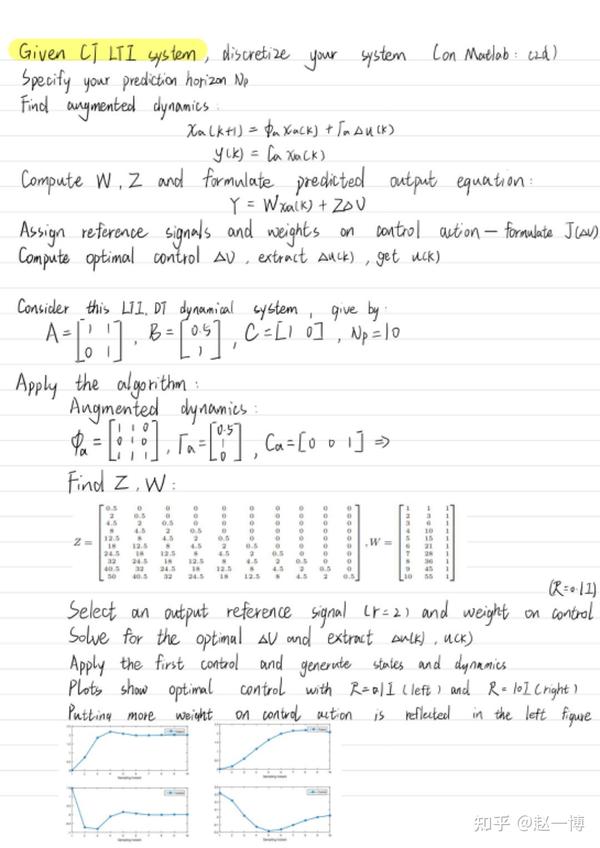 Given CT LTI system, discretize your system (on Matlab: c2d)
Specify your prediction horizon Np
Find augmented dynamics:
xa(k+1) = ɸa xa(k) + Γa Δu(k)
y(k) = Ca xa(k)
Compute W, Z and formulate predicted output equation:
Y = Wxa(k) + ZΔU
Assign reference signals and weights on control action — formulate J(ΔU)
Compute optimal control ΔU, extract Δu(k), get u(k)
Consider this LTI, DT dynamical system, give by:
A = [1 1; 0 1], B = [0.5; 1], C = [1 0], Np = 10
Apply the algorithm:
Augmented dynamics:
ɸa = [1 1 0; 0 1 0; 1 1 1], Γa = [0.5; 1; 0], Ca = [0 0 1] ⇒
Find Z, W:
Z = [0.5 0 0 0 0 0 0 0 0 0; 2 0.5 0 0 0 0 0 0 0 0; 4.5 2 0.5 0 0 0 0 0 0 0; 8 4.5 2 0.5 0 0 0 0 0 0; 12.5 8 4.5 2 0.5 0 0 0 0 0; 18 12.5 8 4.5 2 0.5 0 0 0 0; 24.5 18 12.5 8 4.5 2 0.5 0 0 0; 32 24.5 18 12.5 8 4.5 2 0.5 0 0; 40.5 32 24.5 18 12.5 8 4.5 2 0.5 0; 50 40.5 32 24.5 18 12.5 8 4.5 2 0.5], W = [1 1 1; 2 3 1; 3 6 1; 4 10 1; 5 15 1; 6 21 1; 7 28 1; 8 36 1; 9 45 1; 10 55 1]
(R=0.1I)
Select an output reference signal (r=2) and weight on control
Solve for the optimal ΔU and extract Δu(k), u(k)
Apply the first control and generate states and dynamics
Plots show optimal control with R=0.1I (left) and R=10I (right)
Putting more weight on control action is reflected in the left figure
Sampling instant
Sampling instant
Sampling instant
Sampling instant
知乎 @赵一博